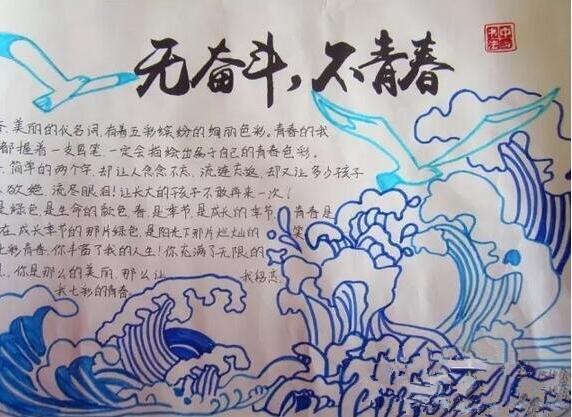 无奋斗,不青春
中国书法
春.美丽的代名词,有着五彩缤纷的绚丽色彩。青春的我
都握着一支画笔,一定会描绘出属于自己的青春色彩。
简单的两个字,却让人念念不忘,流连忘返,却又让多少孩子
欲绝,流尽眼泪!让长大的孩子不敢再来一次!
是绿色,是生命的颜色.春,是季节,是成长的季节,青春是
在成长季节的那片绿色,是阳光下那片灿烂的 笑
七彩青春,你丰富了我的人生!你充满了无限的
你是那么的美丽,那么让 我留恋.
我七彩的青春